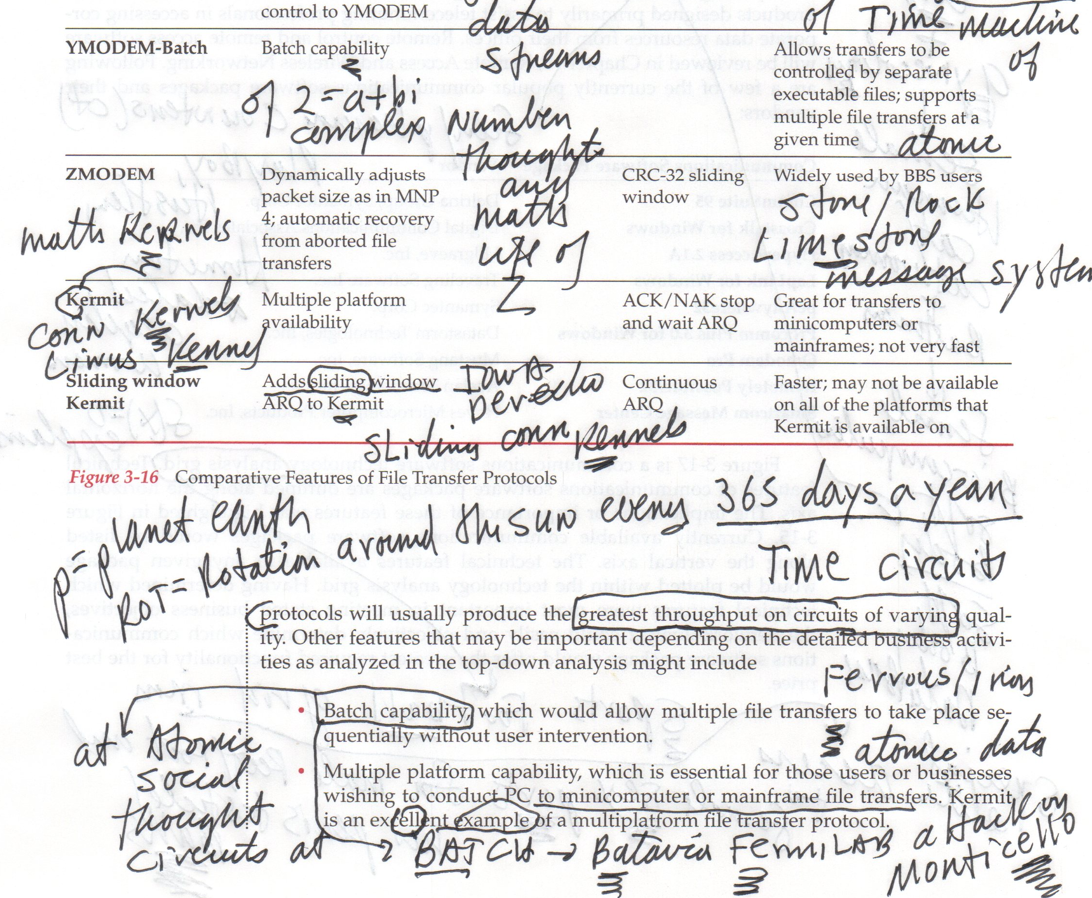 control to YMODEM
data
of Time machine
YMODEM-Batch Batch capability streams Allows transfers to be of
controlled by separate
executable files; supports
multiple file transfers at a
given time atomic
of z=a+bi
complex number
thoughts
any
maths
ZMODEM Dynamically adjusts CRC-32 sliding Widely used by BBS users
packet size as in MNP window
4; automatic recovery
from aborted file
transfers
stone/Rock
Limestone
message system
math Kernels
lets of
Z
Kermit Multiple platform ACK/NAK stop Great for transfers to
availability and wait ARQ minicomputers or
mainframes; not very fast
corn Kernels
Linus Kennel
Sliding window Adds sliding window Continuous Faster; may not be available
Kermit ARQ to Kermit ARQ on all of the platforms that
Kermit is available on
sliding corn Kennels
Figure 3-16 Comparative Features of File Transfer Protocols
p=planet earth
Rotation around the sun every 365 days a year
Time circuits
protocols will usually produce the greatest throughput on circuits of varying qual-
ity. Other features that may be important depending on the detailed business activi-
ties as analyzed in the top-down analysis might include
Ferrous/iron
• Batch capability, which would allow multiple file transfers to take place se-
quentially without user intervention.
atomic data
• Multiple platform capability, which is essential for those users or businesses
wishing to conduct PC to minicomputer or mainframe file transfers. Kermit
is an excellent example of a multiplatform file transfer protocol.
at Atomic
social
thought
circuits at → BATCH → Batavia FermiLAB a Hack on
Monticello